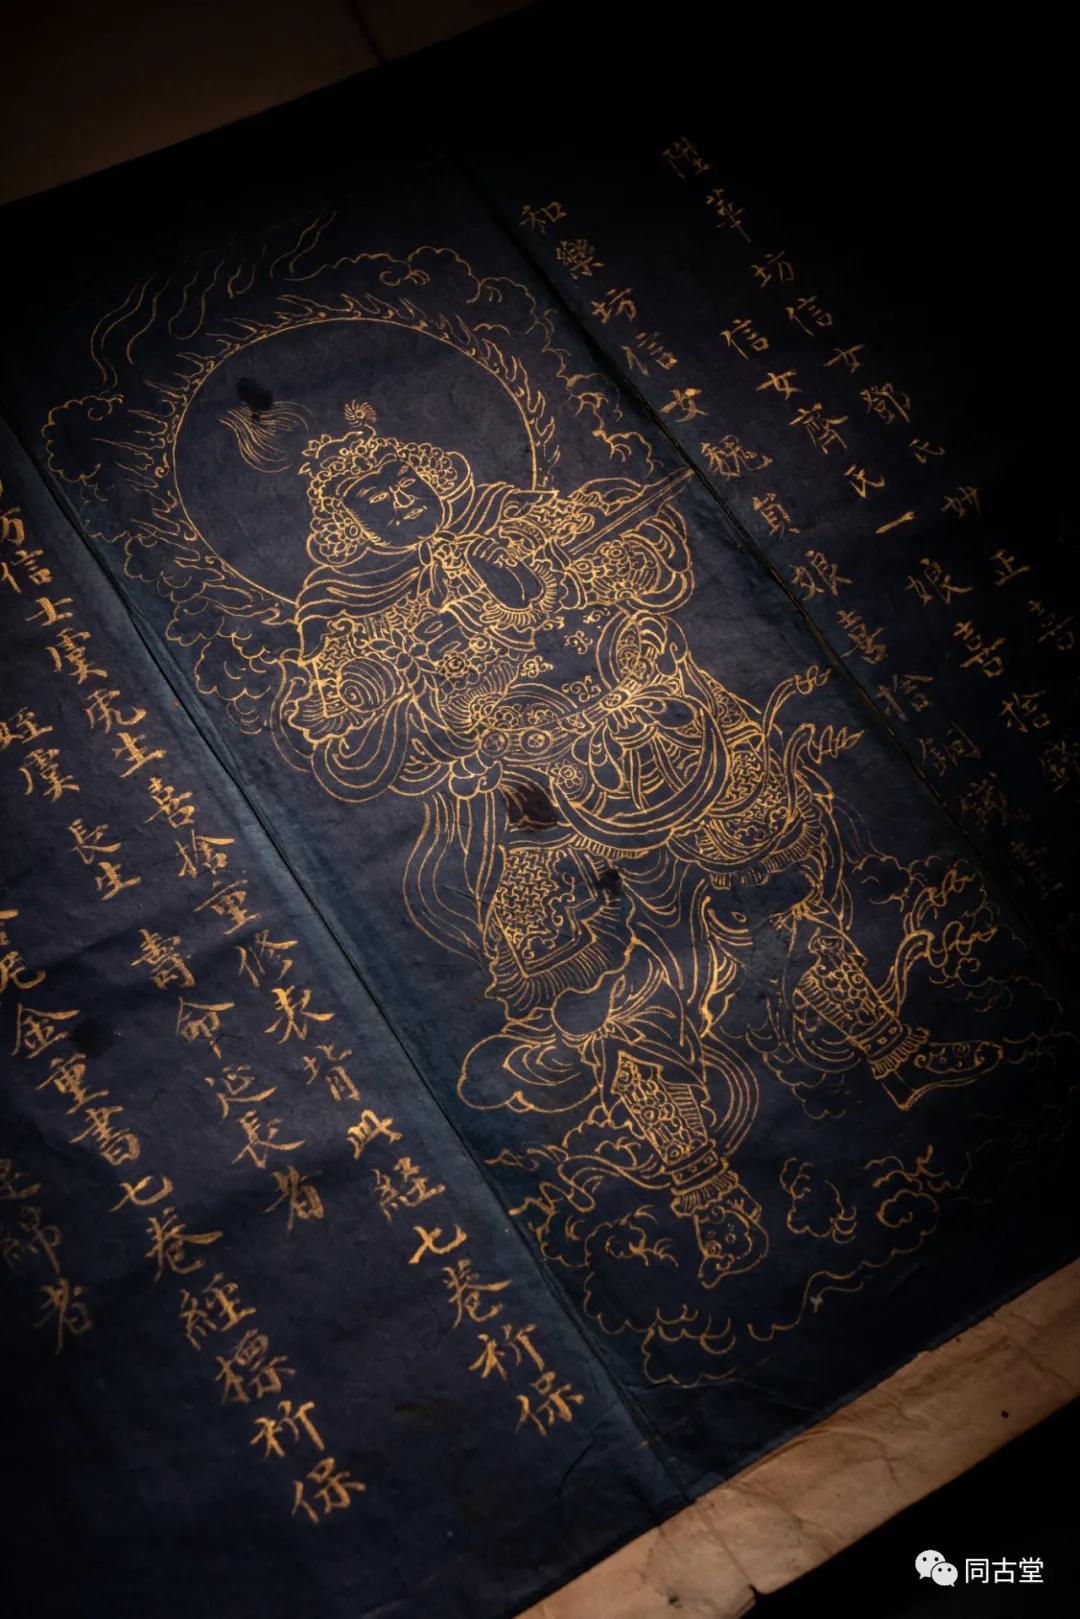 陞華坊信女鄧氏妙正喜
信女齊氏一娘喜拾錢
和樂坊信女魏貟娘喜拾銅錢壹
坊信士虞虎生喜捨重修表背此經七卷祈保
姪虞長生 壽命延長者
金重書七卷經標祈保
綿者
同古堂